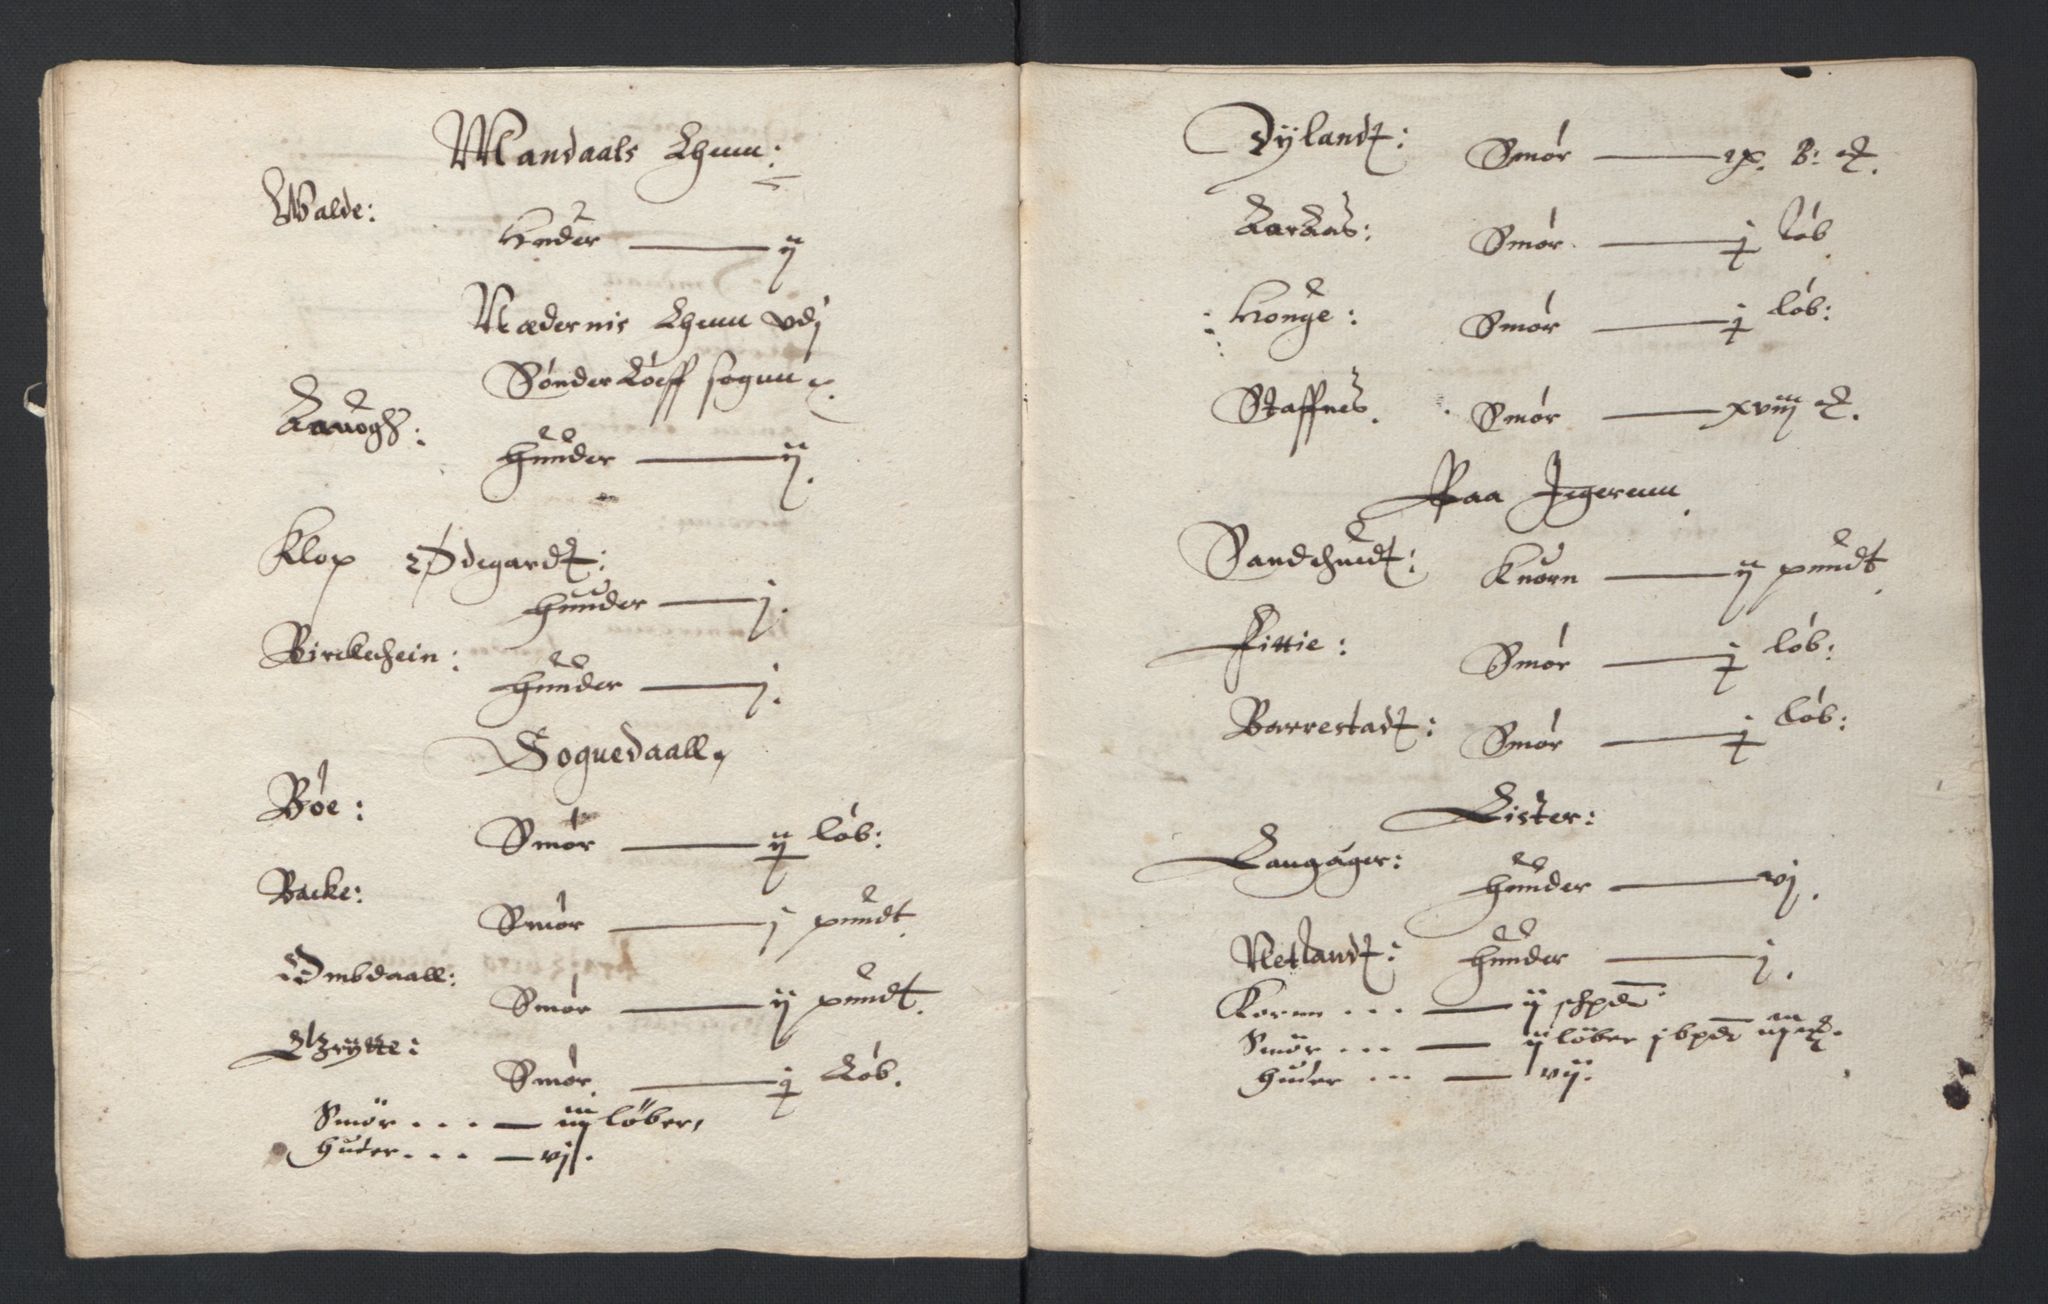 Mandaals Lhenn:
Walde:
Huder — ij
Nædernis Lhenn vdj
Sønder Løeff sogun
hunder — ij.
Klop Ødegardt:
hunder — j.
Birckehein:
hunder — j.
Soguedaall
Bøe:
Smør — ij løb:
Backe:
Smør — j pundt
Ombdaall:
Smør — ij pundt.
Smør — j Løb.
Smør . . . — iiij løber
huder . . . — vj.
Dylandt:
Smør —
Aaraas:
Smør — j løb
Houge:
Smør — j løb:
Staffnes.
Smør — xviij
Paa Jegerunn
Sandehuedt: Kuorn — ij pundt
Fittie:
Smør — j løb:
Barrestadt:
Smør — j løb:
Lister:
Langager:
hunder — vj.
Netlandt: hunder — j.
Koren . . . — ij schpd
Smør . . . — ij løber j bpd
huder . . . — vij.